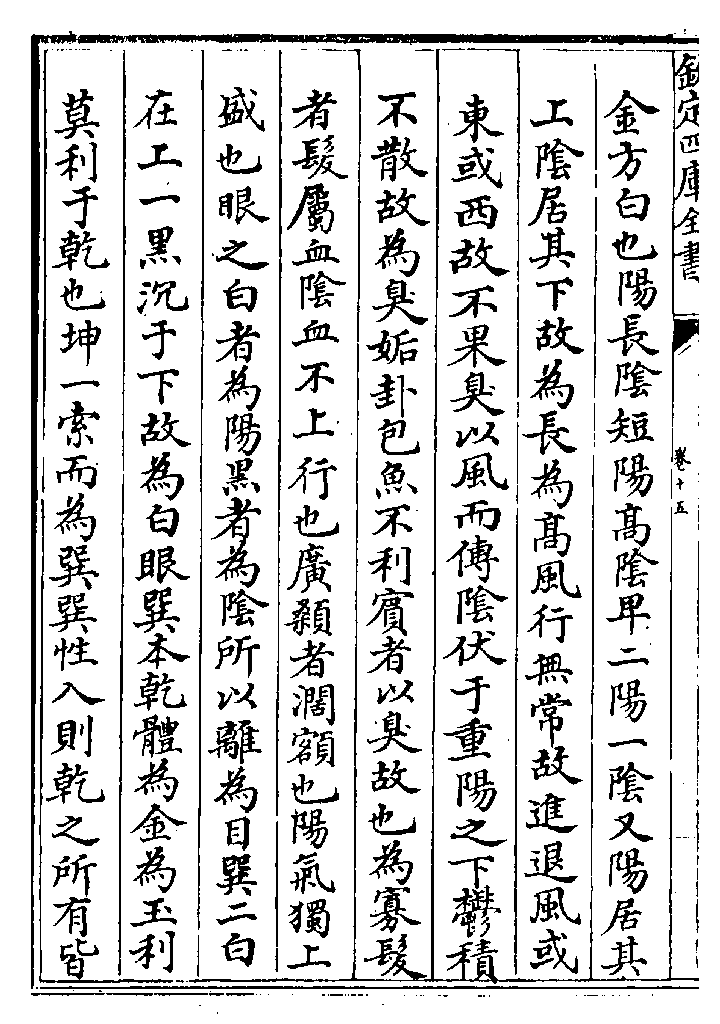 欽定四庫全書
卷十五
金方白也陽長陰短陽高陰卑二陽一陰又陽居其
上陰居其下故為長為高風行無常故進退風或
東或西故不果臭以風而傳陰伏于重陽之下鬱積
不散故為臭姤卦包魚不利賓者以臭故也為寡髮
者髮屬血陰血不上行也廣顙者濶額也陽氣獨上
盛也眼之白者為陽黑者為陰所以離為目巽二白
在上一黑沉于下故為白眼巽本乾體為金為玉利
莫利于乾也坤一索而為巽巽性入則乾之所有皆